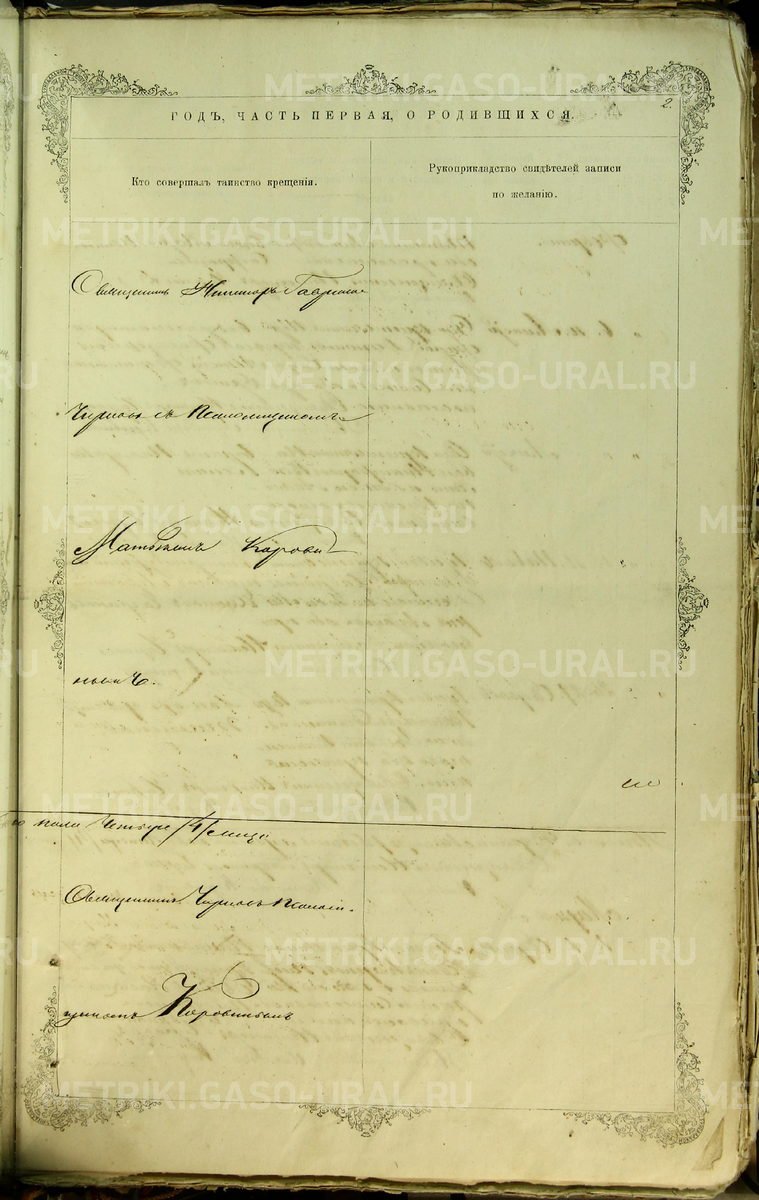 2.
ГОДЪ, ЧАСТЬ ПЕРВАЯ, О РОДИВШИХСЯ.
Кто совершалъ таинство крещенія.
Рукоприкладство свидѣтелей записи
по желанію.
Священникъ Гаврило
Чирковъ съ Псаломщикомъ
Матѳіемъ Корови
нымъ.
Четыре /4/ лица
Священникъ Чирковъ Псалом
щикомъ Коровинымъ
METRIKI.GASO-URAL.RU